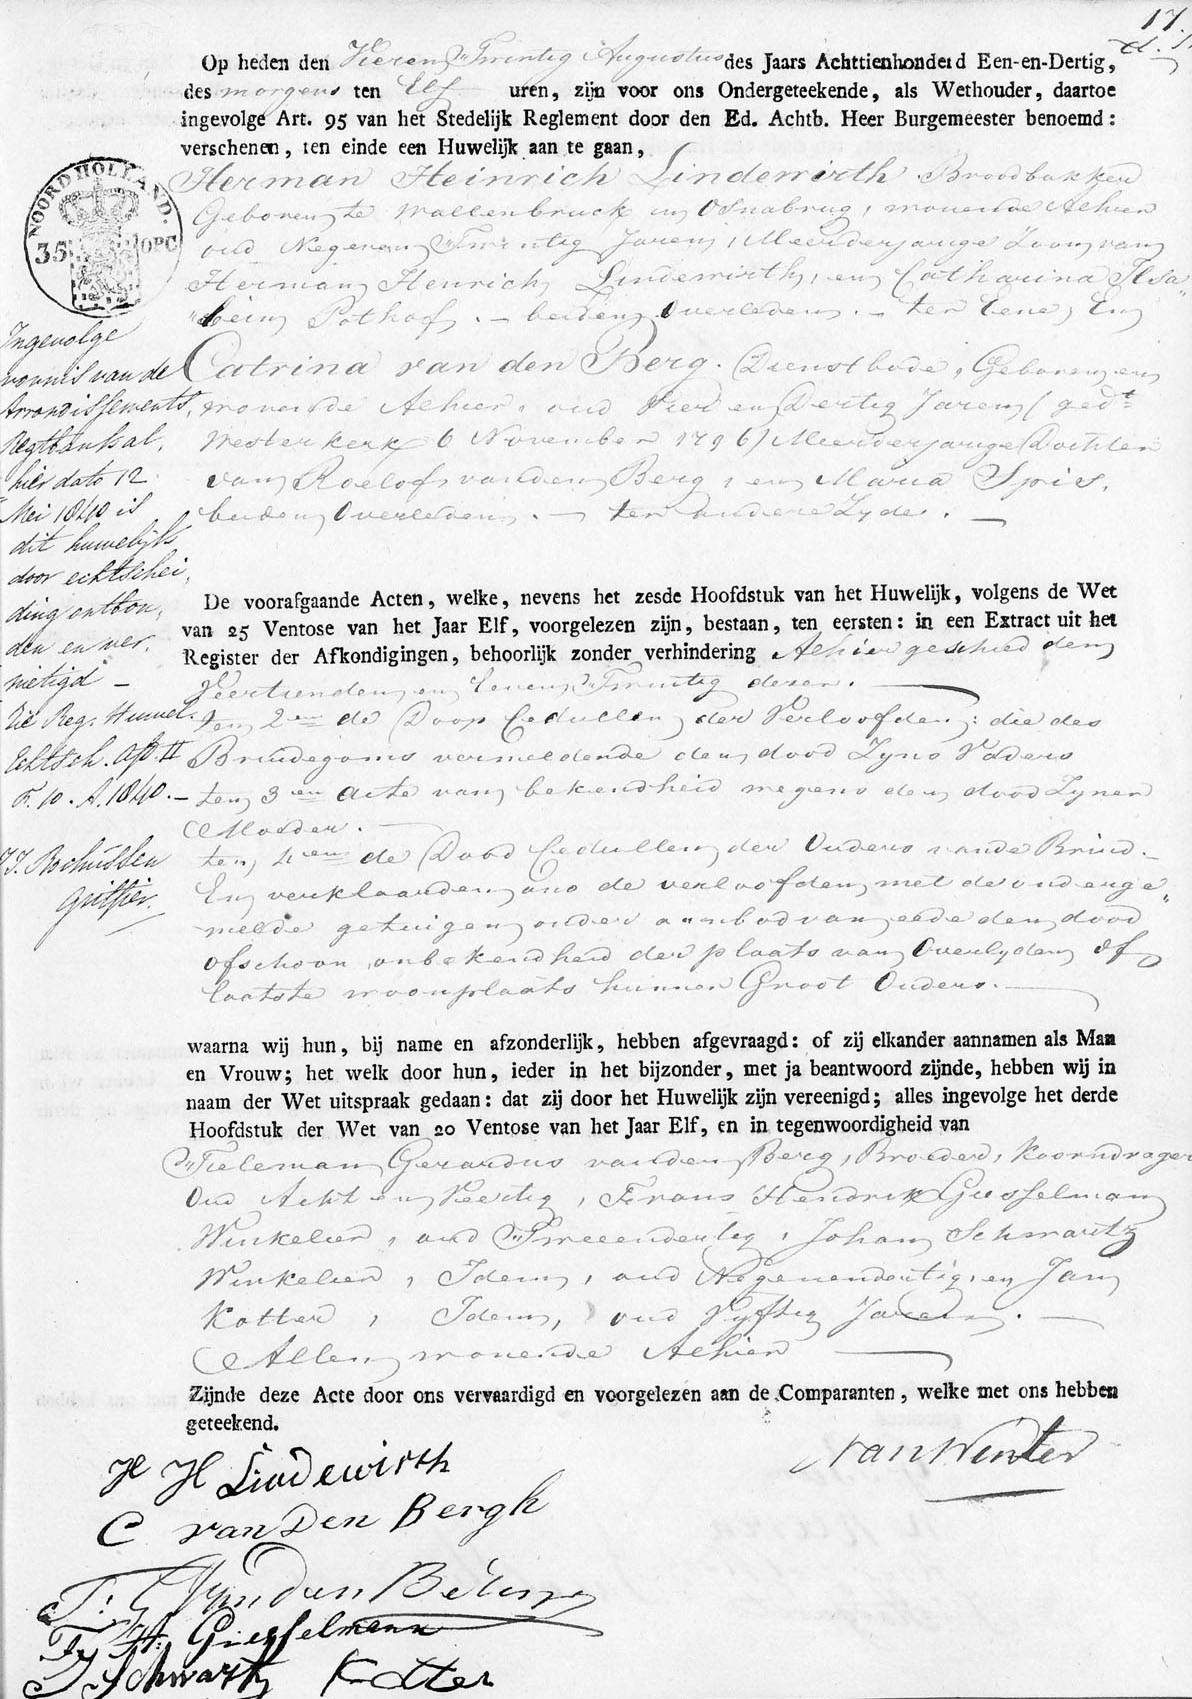 17.
Op heden den Vieren Twintig Augustus des Jaars Achttienhonderd Een-en-Dertig,
des morgens ten Elf uren, zijn voor ons Ondergeteekende, als Wethouder, daartoe
ingevolge Art. 95 van het Stedelijk Reglement door den Ed. Achtb. Heer Burgemeester benoemd:
verschenen, ten einde een Huwelijk aan te gaan,
NOORD HOLLAND.
35 OPC
Herman Heinrich Lindewirth Broodbakker
Geboren te Wallenbruck in Osnabrug, wonende Alhier
oud Negenen Twintig Jaren, Meerderjarige Zoon van
Herman Henrich Lindewirth, en Catharina Ilsa„
„bein Pothof. — beiden Overleden. — ter Eene, En
Catrina van den Berg. Dienstbode, Geboren en
wonende Alhier, oud Vier en Dertig Jaren (gedt
Westerkerk 6 November 1796) Meerderjarige Dochter
van Roelof vanden Berg, en Maria Spies,
beiden Overleden. — ter andere Zyde. —
Ingevolge
vonnis van de
Arrondissements,
Regtbank al,
hier dato 12
Mei 1840 is
dit huwelijk
door echtschei,
ding ontbon,
den en ver,
nietigd —
Vie Reg. Huwel.
Echtsch. Afd. II
F. 10. A. 1840. —
J. J. Bochussen
Griffier.
De voorafgaande Acten, welke, nevens het zesde Hoofdstuk van het Huwelijk, volgens de Wet
van 25 Ventose van het Jaar Elf, voorgelezen zijn, bestaan, ten eersten: in een Extract uit het
Register der Afkondigingen, behoorlijk zonder verhindering Alhier geschied den
Veertienden en Eenen Twintig dezer. —
ten 2en de Doop Cedullen der Verloofden: die des
Bruidegoms vermeldende den dood Zyns Vaders
ten 3en Acte van bekendheid wegens den dood Zyner
Moeder. —
ten 4en de Dood Cedullen der Ouders vande Bruid. —
En verklaarden ons de verloofden met de onderge„
„melde getuigen onder aanbod van eede den dood
ofschoon onbekendheid der plaats van Overlyden of
laatste woonplaats hunner Groot Ouders. —
waarna wij hun, bij name en afzonderlijk, hebben afgevraagd: of zij elkander aannamen als Man
en Vrouw; het welk door hun, ieder in het bijzonder, met ja beantwoord zijnde, hebben wij in
naam der Wet uitspraak gedaan: dat zij door het Huwelijk zijn vereenigd; alles ingevolge het derde
Hoofdstuk der Wet van 20 Ventose van het Jaar Elf, en in tegenwoordigheid van
Tieleman Gerardus vanden Berg, Broeder, Koorndrager
Oud Acht en Veertig, Frans Hendrik Giesselman
Winkelier, oud Tweeendertig, Johan Schwartz
Winkelier, Idem, oud Negenendertig, en Jan
Kotter, Idem, oud Vyftig Jaren. —
Allen wonende Alhier —
Zijnde deze Acte door ons vervaardigd en voorgelezen aan de Comparanten, welke met ons hebben
geteekend.
van Winter
H H Lindewirth
C van Den Bergh
T: G Van den Berg
F. H. Giesselmann
J Schwartz Kotter